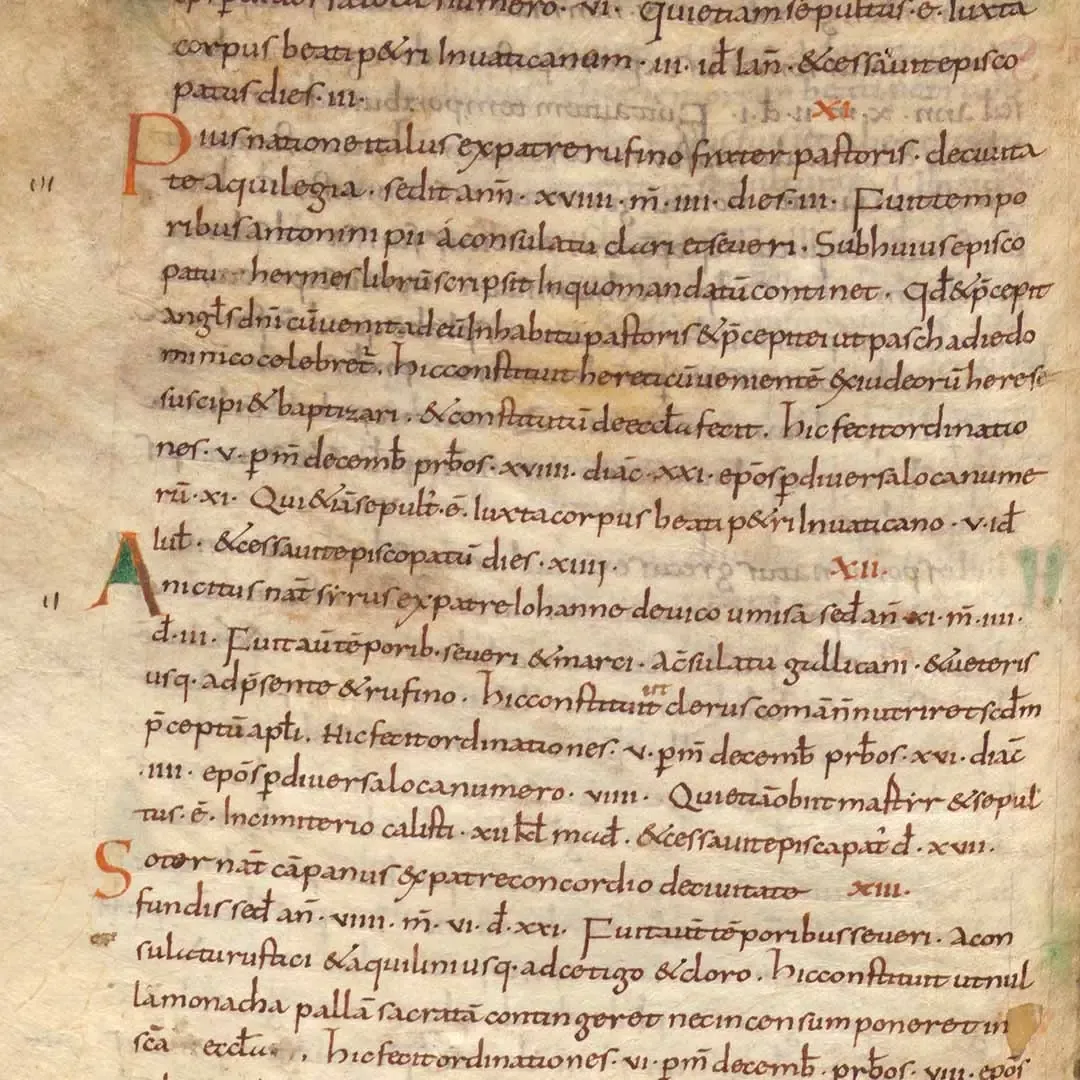 numero · vi · Quietiam sepultus · ē · Iuxta
corpus beati p&ri Inuaticanum · iii · id̄ Ian̄ · &cessauit episco
patus dies · iii ·
XI
Pius natione italus expatre rufino frater pastoris · deciuita
te aquilegia · sedit ann̄ · xviiii · m̄ · iiii · dies · iii · Fuit tempo
ribus antonini pii á consulatu clari et seueri · Sub huius episco
patu hermes librū scripsit Inquo mandatū continet · Qd̄ &p̄cepit
angl̄s dn̄i cū uenit ad eū Inhabitu pastoris &p̄cepit ei ut pascha die do
minico celebret̄ · hic constituit hereticū uenientē &xiudeorū herese
suscipi & baptizari · & constitutū de eccl̄a fecit · hic fecit ordinatio
nes · v · ꝑ m̄ decemb̄ prb̄os · xviiii · diac̄ · xxi · ep̄os ꝑ diuersa loca nume
rū · xi · Qui &iā sepult̄ · ē · Iuxta corpus beati p&ri Inuaticano · v · id̄
Iul̄ · & cessauit episcopatū dies · xiiii ·
XII ·
Anicitus nat̄ syrus expatre Iohanne deuico umisa sed̄ an̄ xi · m̄ · iiii ·
d̄ · iii · Fuit aū tēporib · seueri & marci · Ac̄sulatu gallicani · & ueteris
usq · ad p̄sente & rufino · hic constituit ut clerus comā n̄ nutriret scd̄m
p̄ceptū apl̄i · Hic fecit ordinationes · v · ꝑ m̄ decemb̄ prb̄os · xvi · diac̄
· iiii · ep̄os ꝑ diuersa loca numero · viiii · Qui etiā obiit martyr & sepul
tus · ē · Incimiterio calisti · xii kl̄ mad̄ · & cessauit episcapat̄ d̄ · xvii ·
Soter nat̄ cāpanus &xpatre concordio deciuitate XIII ·
fundis sed̄ an̄ · viiii · m̄ · vi · d̄ · xxi · Fuit aūt tēporibus seueri · Acon
sulatu rustici & aquilini usq · ad cetigo & cloro · hic constituit ut nul
la monacha pallā sacratā contingeret nec incensum poneret in
sc̄a eccl̄a · hic fecit ordinationes · vi · ꝑ m̄ decemb̄ · prb̄os · viii · ep̄os